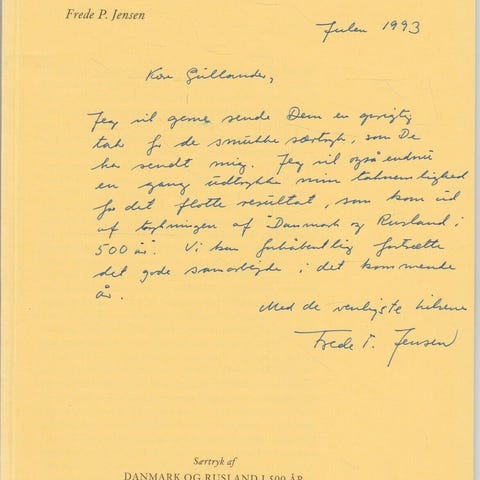 Frede P. Jensen
Julen 1993
Kære Gullander,
Jeg vil gerne sende Dem en oprigtig
tak for de smukke særtryk, som De
har sendt mig. Jeg vil også endnu
en gang udtrykke min taknemlighed
for det flotte resultat, som kom ud
af trykningen af "Danmark og Rusland i
500 år". Vi kan forhåbentlig fortsætte
det gode samarbejde i det kommende
år.
Med de venligste hilsener
Frede P. Jensen
Særtryk af
DANMARK OG RUSLAND I 500 ÅR